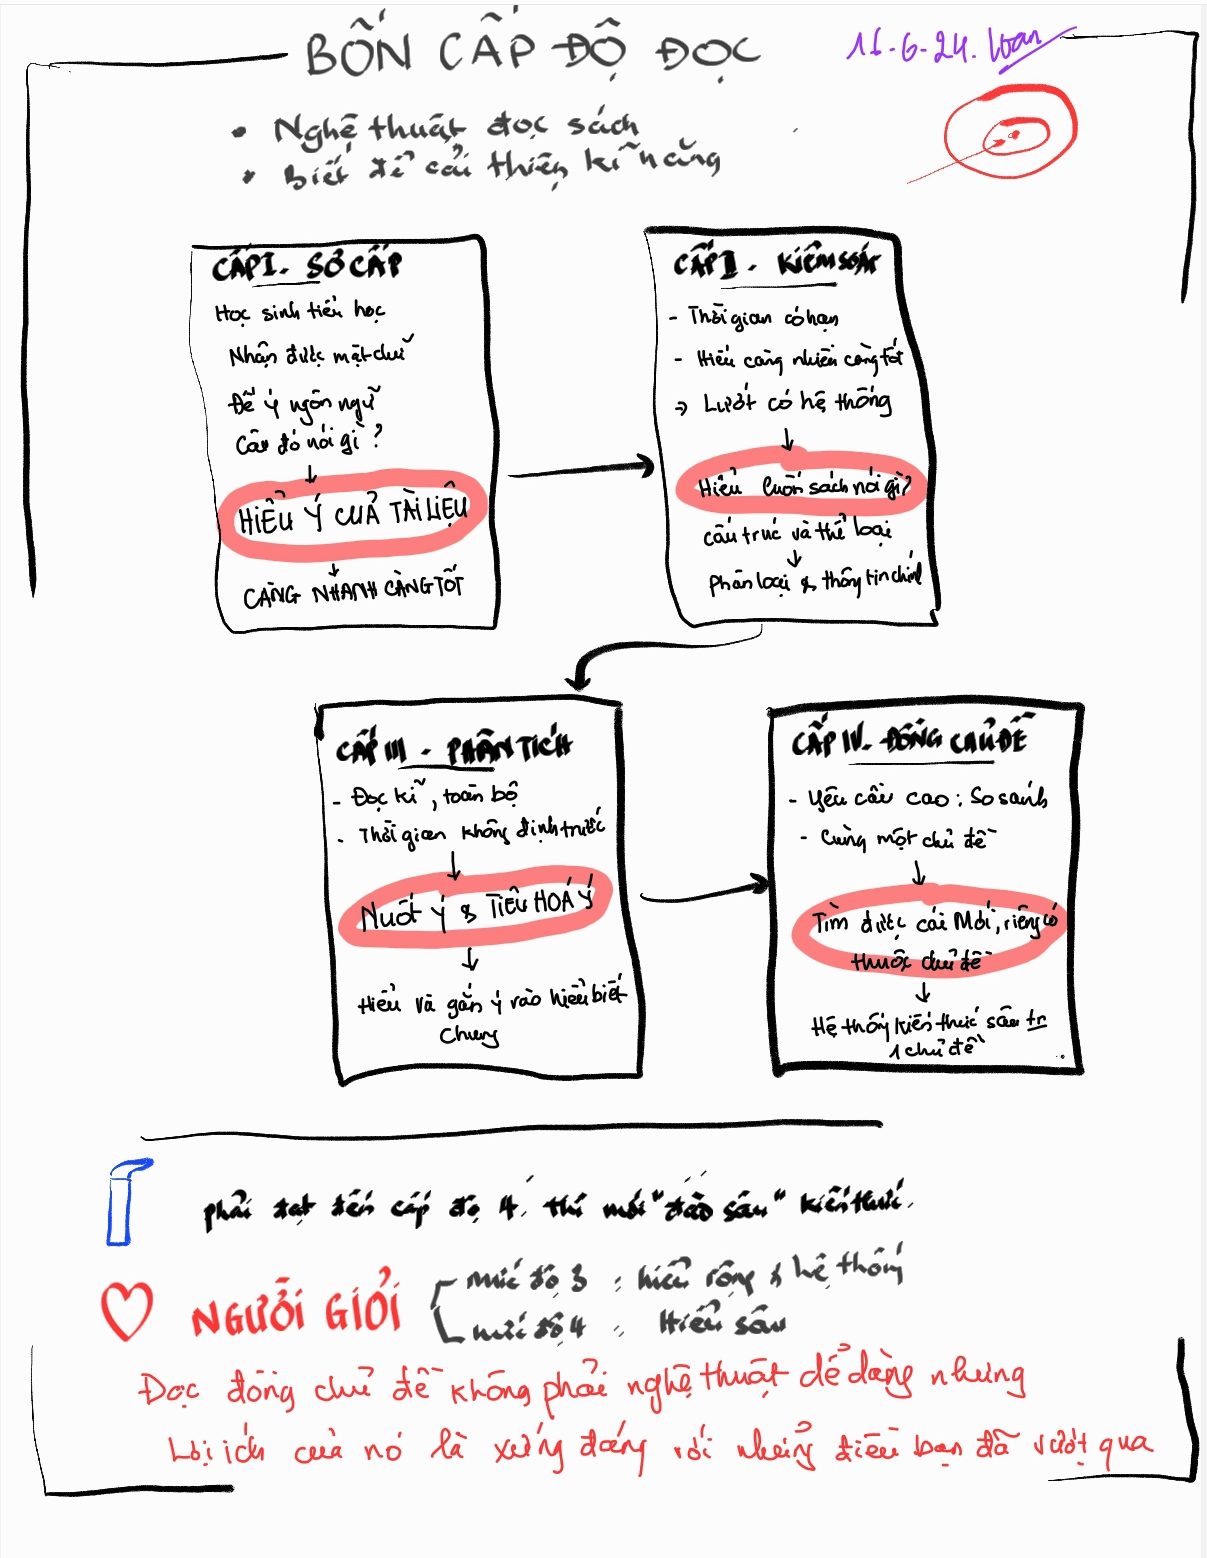 BỐN CẤP ĐỘ ĐỌC
16-6-24. Loan
• Nghệ thuật đọc sách
• Biết để cải thiện kĩ năng
CẤP I - SƠ CẤP
Học sinh tiểu học
Nhận được mặt chữ
Để ý ngôn ngữ
Câu đó nói gì?
↓
HIỂU Ý CỦA TÀI LIỆU
↓
CÀNG NHANH CÀNG TỐT
CẤP II - KIỂM SOÁT
- Thời gian có hạn
- Hiểu càng nhiều càng tốt
⇒ Lướt có hệ thống
↓
Hiểu cuốn sách nói gì?
cấu trúc và thể loại
↓
Phân loại & thông tin chính
CẤP III - PHÂN TÍCH
- Đọc kĩ, toàn bộ
- Thời gian không định trước
↓
Nuốt Ý & TIÊU HOÁ Ý
↓
Hiểu và gắn ý vào hiểu biết
chung
CẤP IV - ĐỒNG CHỦ ĐỀ
- Yêu cầu cao: So sánh
- Cùng một chủ đề
↓
Tìm được cái Mới, riêng có
thuộc chủ đề
↓
Hệ thống kiến thức sâu tr
1 chủ đề
phải đạt đến cấp độ 4 thì mới "đào sâu" kiến thức.
NGƯỜI GIỎI
mức độ 3 : hiểu rộng & hệ thống
mức độ 4 : Hiểu sâu
Đọc đồng chủ đề không phải nghệ thuật dễ dàng nhưng
Lợi ích của nó là xứng đáng với những điều bạn đã vượt qua